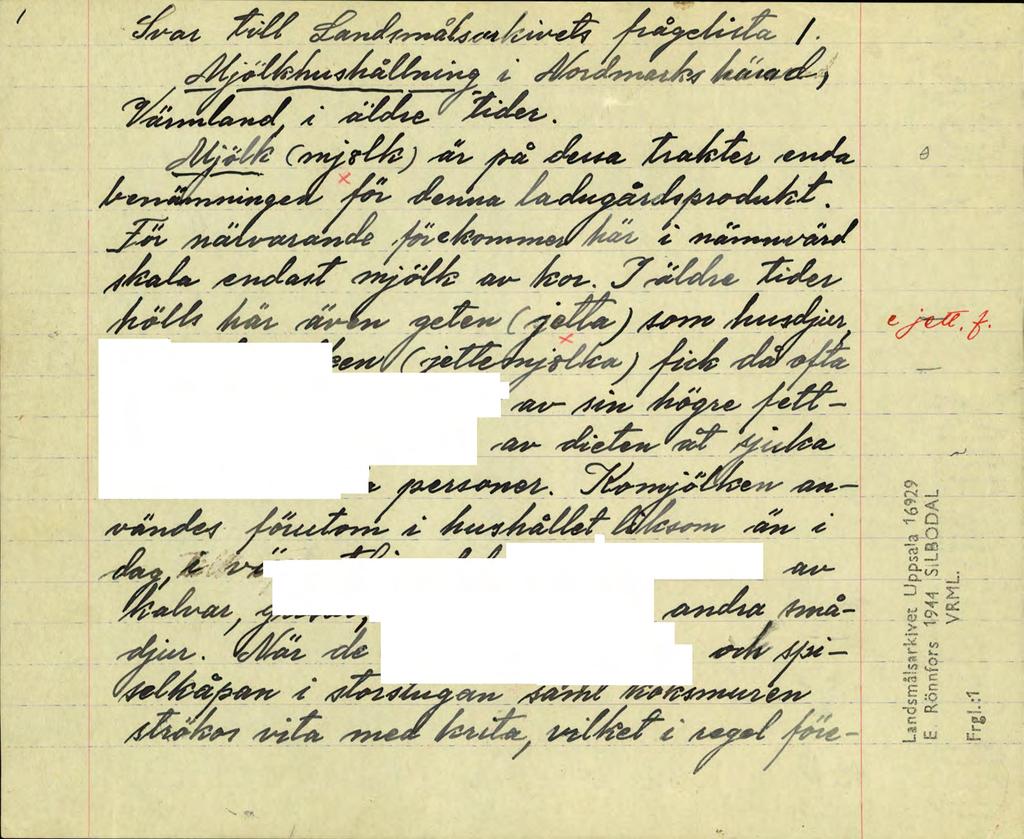 1
Svar till Landsmålsarkivets frågelista 1.
Mjölkhushållning i Nordmarks härad,
Värmland, i äldre tider.
Mjölk (mjølk) är på dessa trakter enda
benämningen för denna ladugårdsprodukt.
För närvarande förekommer här i nämnvärd
skala endast mjölk av kor. I äldre tider
hölls här även geten (jetta) som husdjur,
(jettemjølka) fick då ofta
av sin högre fett-
av dieten åt sjuka
personer. Komjölken an-
vändes förutom i hushållet liksom än i
dag, av
kalvar, andra små-
djur. När de och spi-
selkåpan i storstugan samt köksmuren
ströks vita med krita, vilket i regel före-
e jett, f.
Landsmålsarkivet Uppsala 16929
E. Rönnfors 1944 SILBODAL
VRML.
Frgl.:1